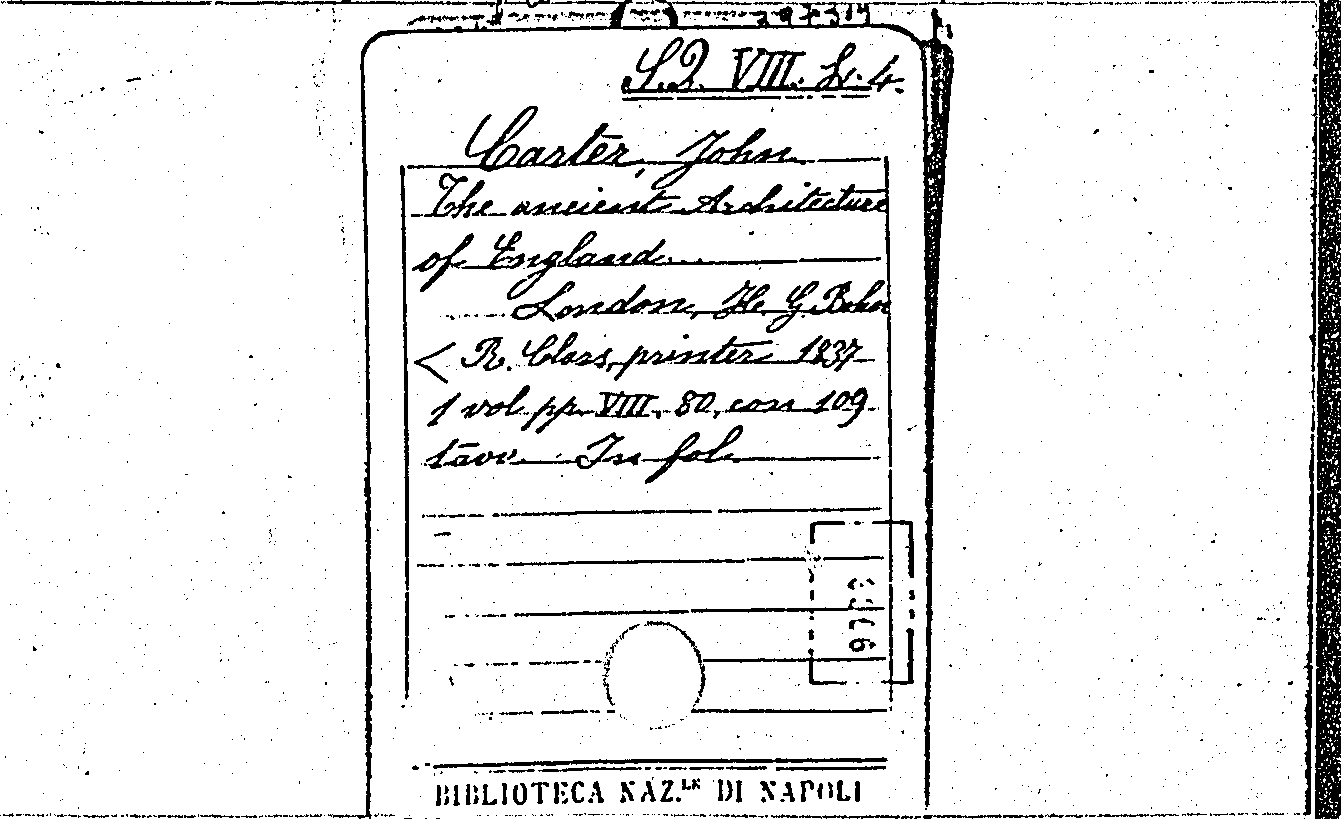 S.Q. VIII. L. 4.
Carter, John
The ancient Architecture
of England
London, H. G. Bohn
< R. Clars, printer 1837
1 vol pp. VIII. 80, con 109
tavv. In fol.
BIBLIOTECA NAZ.LE DI NAPOLI